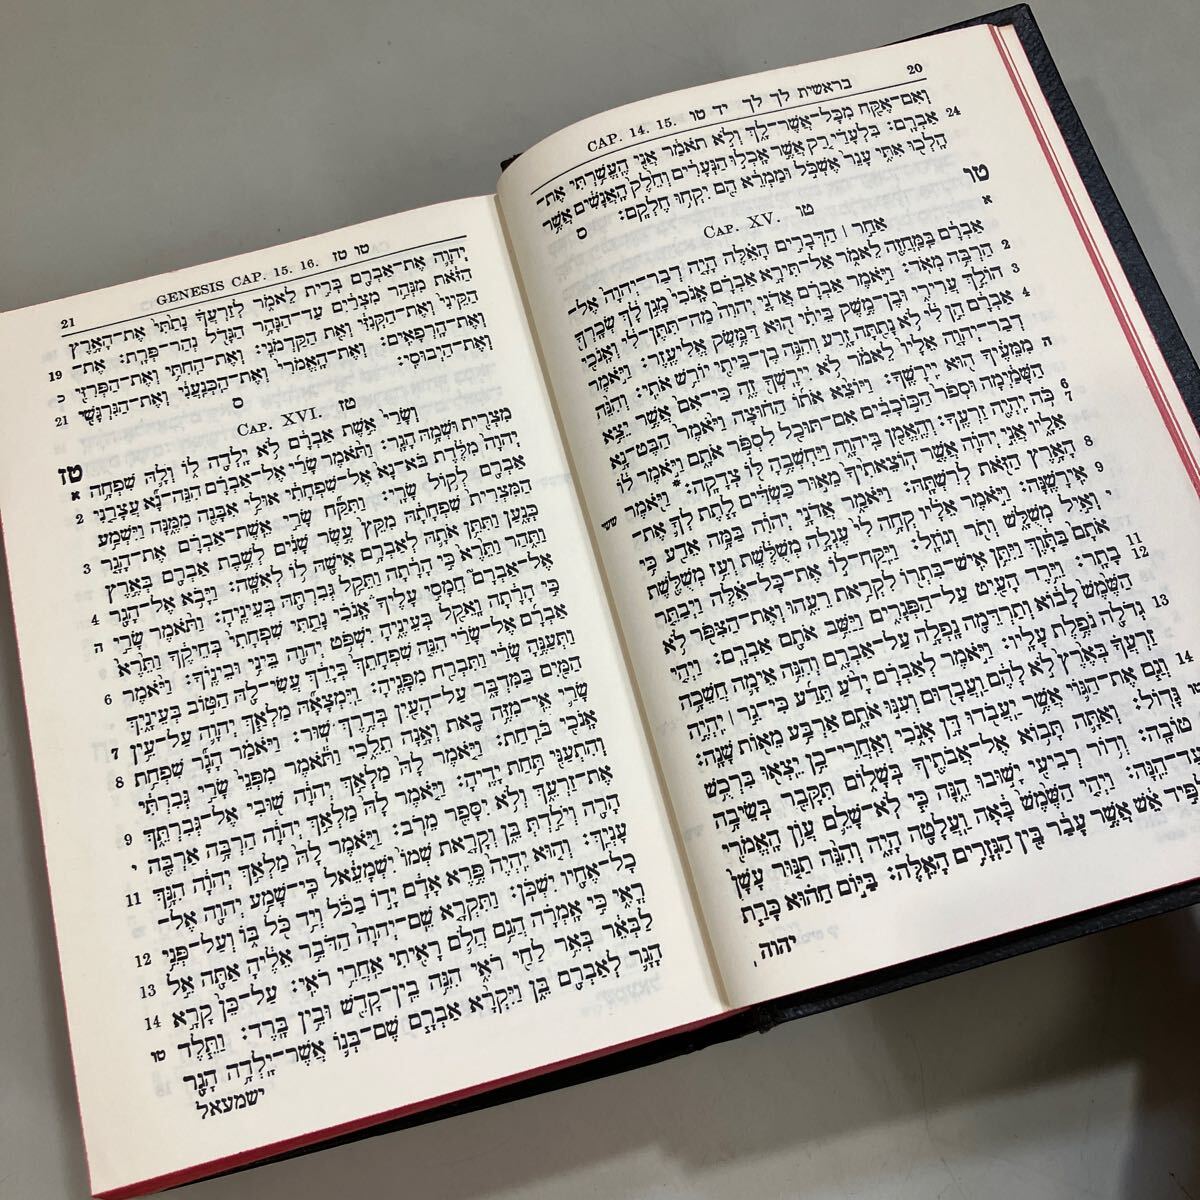 20 בראשית לך לך יד טו CAP. 14. 15.
ואם־אקח מכל־אשר־לך ולא תאמר אני העשרתי את־
24 אברם: בלעדי רק אשר אכלו הנערים וחלק האנשים אשר
הלכו אתי ענר אשכל וממרא הם יקחו חלקם: ס
טו CAP. XV. טו
א אחר | הדברים האלה היה דבר־יהוה אל־
אברם במחזה לאמר אל־תירא אברם אנכי מגן לך שכרך
2 הרבה מאד: ויאמר אברם אדני יהוה מה־תתן־לי ואנכי
3 הולך ערירי ובן־משק ביתי הוא דמשק אליעזר: ויאמר
אברם הן לי לא נתתה זרע והנה בן־ביתי יורש אתי: והנה
4 דבר־יהוה אליו לאמר לא יירשך זה כי־אם אשר יצא
ה ממעיך הוא יירשך: ויוצא אתו החוצה ויאמר הבט־נא
השמימה וספר הכוכבים אם־תוכל לספר אתם ויאמר לו
6 7 כה יהיה זרעך: והאמן ביהוה ויחשבה לו צדקה:* ויאמר ששי
אליו אני יהוה אשר הוצאתיך מאור כשדים לתת לך את־
8 הארץ הזאת לרשתה: ויאמר אדני יהוה במה אדע כי
9 אירשנה: ויאמר אליו קחה לי עגלה משלשת ועז משלשת
י ואיל משלש ותר וגוזל: ויקח־לו את־כל־אלה ויבתר
אתם בתוך ויתן איש־בתרו לקראת רעהו ואת־הצפר לא
11 12 בתר: וירד העיט על־הפגרים וישב אתם אברם: ויהי
השמש לבוא ותרדמה נפלה על־אברם והנה אימה חשכה
13 גדלה נפלת עליו: ויאמר לאברם ידע תדע כי־גר | יהיה
זרעך בארץ לא להם ועבדום וענו אתם ארבע מאות שנה:
14 וגם את־הגוי אשר יעבדו דן אנכי ואחרי־כן יצאו ברכש
גדול: ואתה תבוא אל־אבתיך בשלום תקבר בשיבה
טובה: ודור רביעי ישובו הנה כי לא־שלם עון האמרי
הנה: ויהי השמש באה ועלטה היה והנה תנור עשן
אש אשר עבר בין הגזרים האלה: ביום ההוא כרת
יהוה
טו טז GENESIS CAP. 15. 16. 21
יהוה את־אברם ברית לאמר לזרעך נתתי את־הארץ
19 הזאת מנהר מצרים עד־הנהר הגדל נהר־פרת: את־
כ הקיני ואת־הקנזי ואת הקדמני: ואת־החתי ואת־הפרזי
21 ואת־הרפאים: ואת־האמרי ואת־הכנעני ואת־הגרגשי
ואת־היבוסי: ס
טז CAP. XVI. טז
א ושרי אשת אברם לא ילדה לו ולה שפחה
2 מצרית ושמה הגר: ותאמר שרי אל־אברם הנה־נא עצרני
יהוה מלדת בא־נא אל־שפחתי אולי אבנה ממנה וישמע
3 אברם לקול שרי: ותקח שרי אשת־אברם את־הגר
המצרית שפחתה מקץ עשר שנים לשבת אברם בארץ
4 כנען ותתן אתה לאברם אישה לו לאשה: ויבא אל־הגר
ה ותהר ותרא כי הרתה ותקל גברתה בעיניה: ותאמר שרי
אל־אברם חמסי עליך אנכי נתתי שפחתי בחיקך ותרא
6 כי הרתה ואקל בעיניה ישפט יהוה ביני וביניך: ויאמר
אברם אל־שרי הנה שפחתך בידך עשי־לה הטוב בעיניך
7 ותענה שרי ותברח מפניה: וימצאה מלאך יהוה על־עין
8 המים במדבר על־העין בדרך שור: ויאמר הגר שפחת
שרי אי־מזה באת ואנה תלכי ותאמר מפני שרי גברתי
9 אנכי ברחת: ויאמר לה מלאך יהוה שובי אל־גברתך
י והתעני תחת ידיה: ויאמר לה מלאך יהוה הרבה ארבה
11 את־זרעך ולא יספר מרב: ויאמר לה מלאך יהוה הנך
הרה וילדת בן וקראת שמו ישמעאל כי־שמע יהוה אל־
12 עניך: והוא יהיה פרא אדם ידו בכל ויד כל בו ועל־פני
13 כל־אחיו ישכן: ותקרא שם־יהוה הדבר אליה אתה אל
14 ראי כי אמרה הגם הלם ראיתי אחרי ראי: על־כן קרא
טו לבאר באר לחי ראי הנה בין־קדש ובין ברד: ותלד
הגר לאברם בן ויקרא אברם שם־בנו אשר־ילדה הגר
ישמעאל